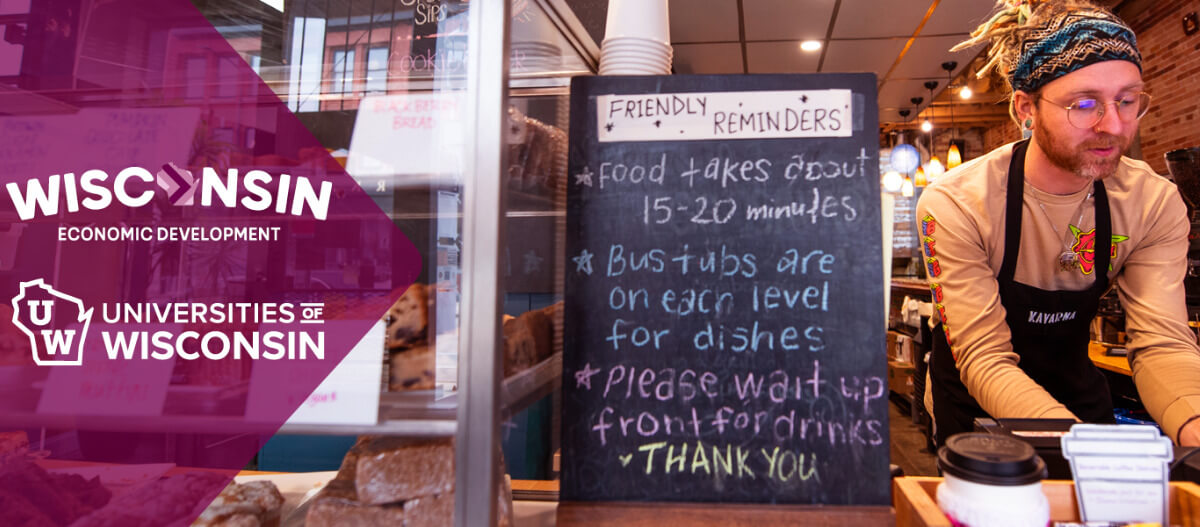 SIPS
Cookie
BLACKBERRY
BREAD
WISCONSIN
ECONOMIC DEVELOPMENT
UW
UNIVERSITIES OF
WISCONSIN
FRIENDLY REMINDERS
Food takes about
15-20 minutes
Bus tubs are
on each level
for dishes
Please wait up
front for drinks
THANK YOU